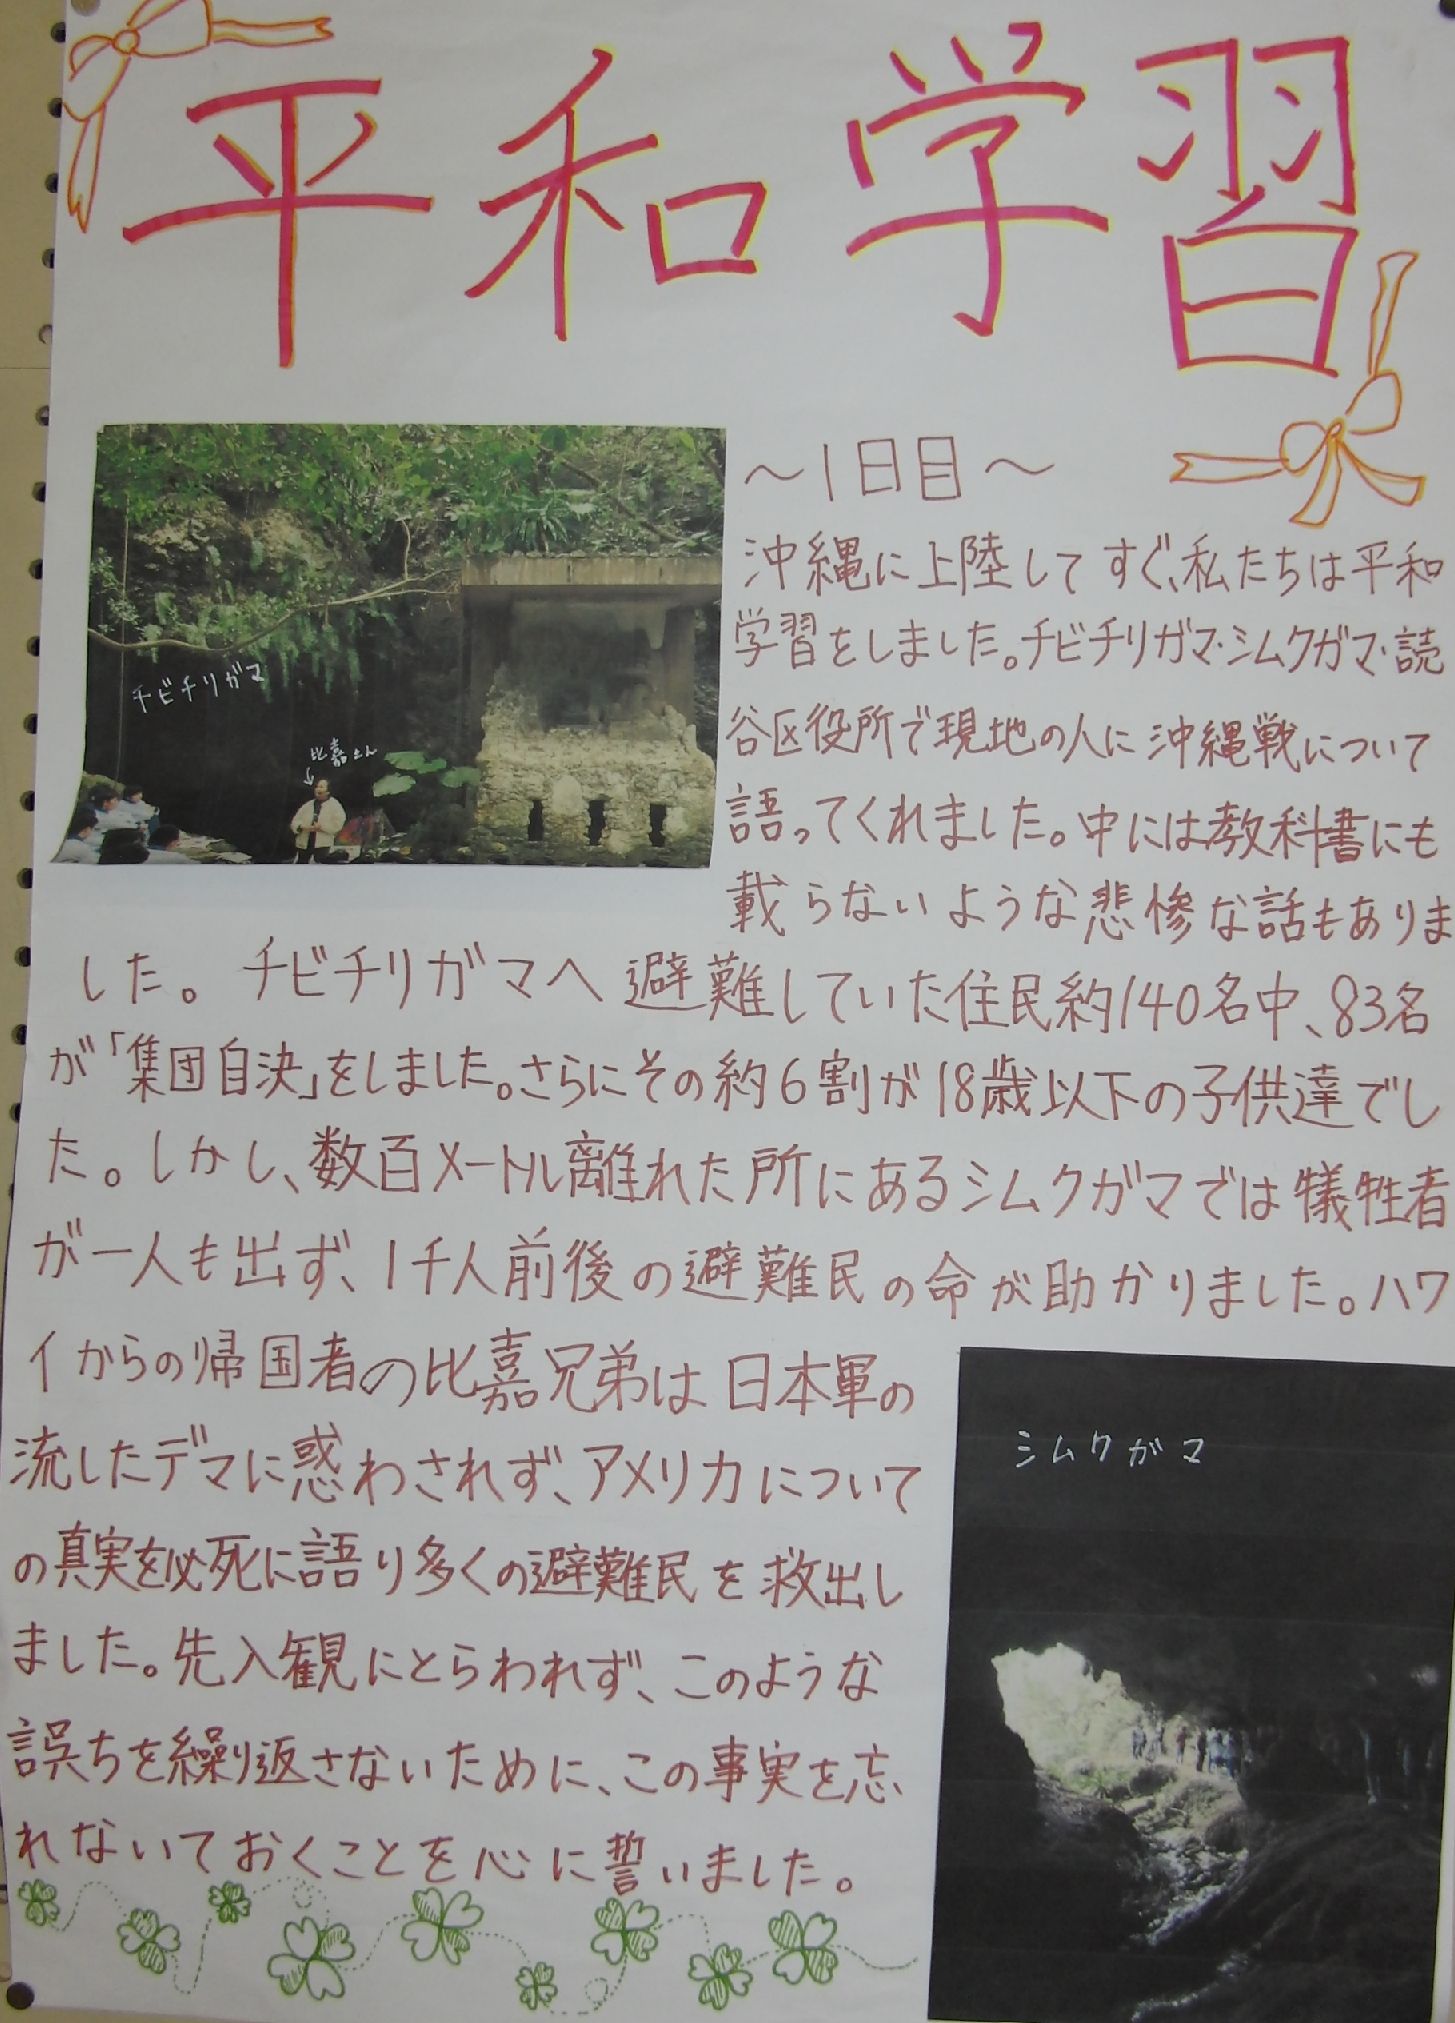 平和学習
～1日目～
沖縄に上陸してすぐ、私たちは平和
学習をしました。チビチリガマ・シムクガマ・読
谷区役所で現地の人に沖縄戦について
語ってくれました。中には教科書にも
載らないような悲惨な話もありま
チビチリガマ
比嘉さん
した。チビチリガマへ避難していた住民約140名中、83名
が「集団自決」をしました。さらにその約6割が18歳以下の子供達でし
た。しかし、数百メートル離れた所にあるシムクガマでは犠牲者
が一人も出ず、1千人前後の避難民の命が助かりました。ハワ
イからの帰国者の比嘉兄弟は日本軍の
流したデマに惑わされず、アメリカについて
の真実を必死に語り多くの避難民を救出し
ました。先入観にとらわれず、このような
誤ちを繰り返さないために、この事実を忘
れないでおくことを心に誓いました。
シムクガマ